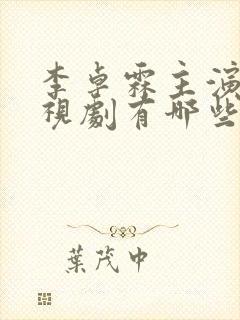 李卓霖主演
視劇有哪些
葉茂中